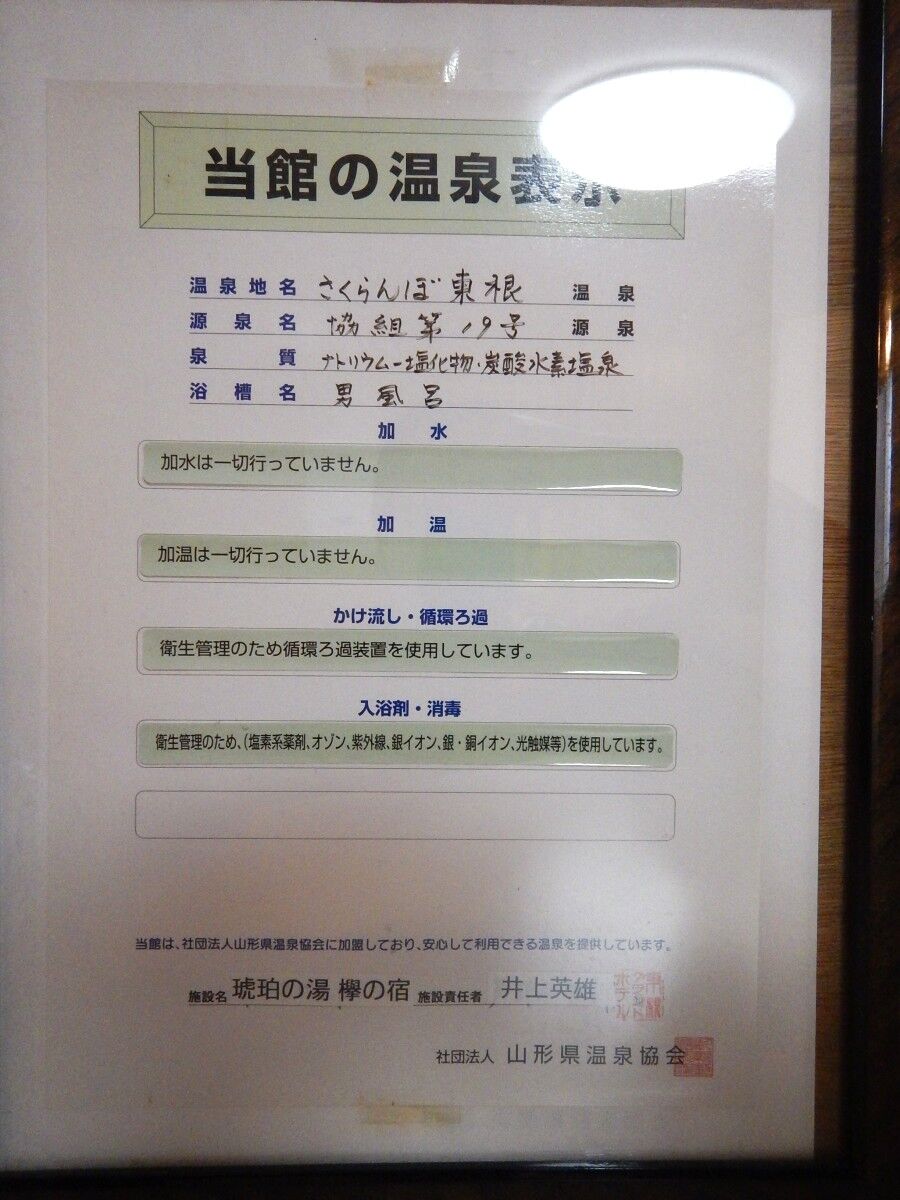 当館の温泉表示
温泉地名 さくらんぼ東根 温泉
源泉名 協組第19号 源泉
泉質 ナトリウムー塩化物・炭酸水素塩泉
浴槽名 男風呂
加水
加水は一切行っていません。
加温
加温は一切行っていません。
かけ流し・循環ろ過
衛生管理のため循環ろ過装置を使用しています。
入浴剤・消毒
衛生管理のため、(塩素系薬剤、オゾン、紫外線、銀イオン、銀・銅イオン、光触媒等)を使用しています。
当館は、社団法人山形県温泉協会に加盟しており、安心して利用できる温泉を提供しています。
施設名 琥珀の湯 欅の宿 施設責任者 井上英雄
社団法人 山形県温泉協会